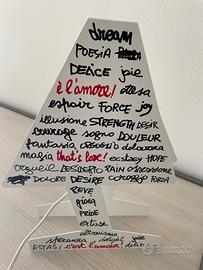 dream
POESIA
DELICE joie
è l'amore! attesa
espoir FORCE joy
illusione STRENGTH DESIR
courage sogno DOULEUR
fantasia OBSESSION
magia that's love! ecstasy HOPE
orgueil DESIDERIO PAIN OBSESSION
DOLORE DESIRE coraggio FORZA
REVE
PRIDE
extase
altruismo
speranza delight joie
ESTASI c'est l'amour!
Subito.it